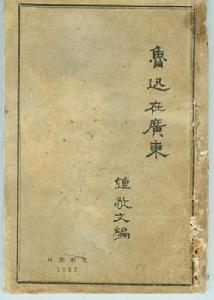 魯迅在廣東
鍾敬文編
1927